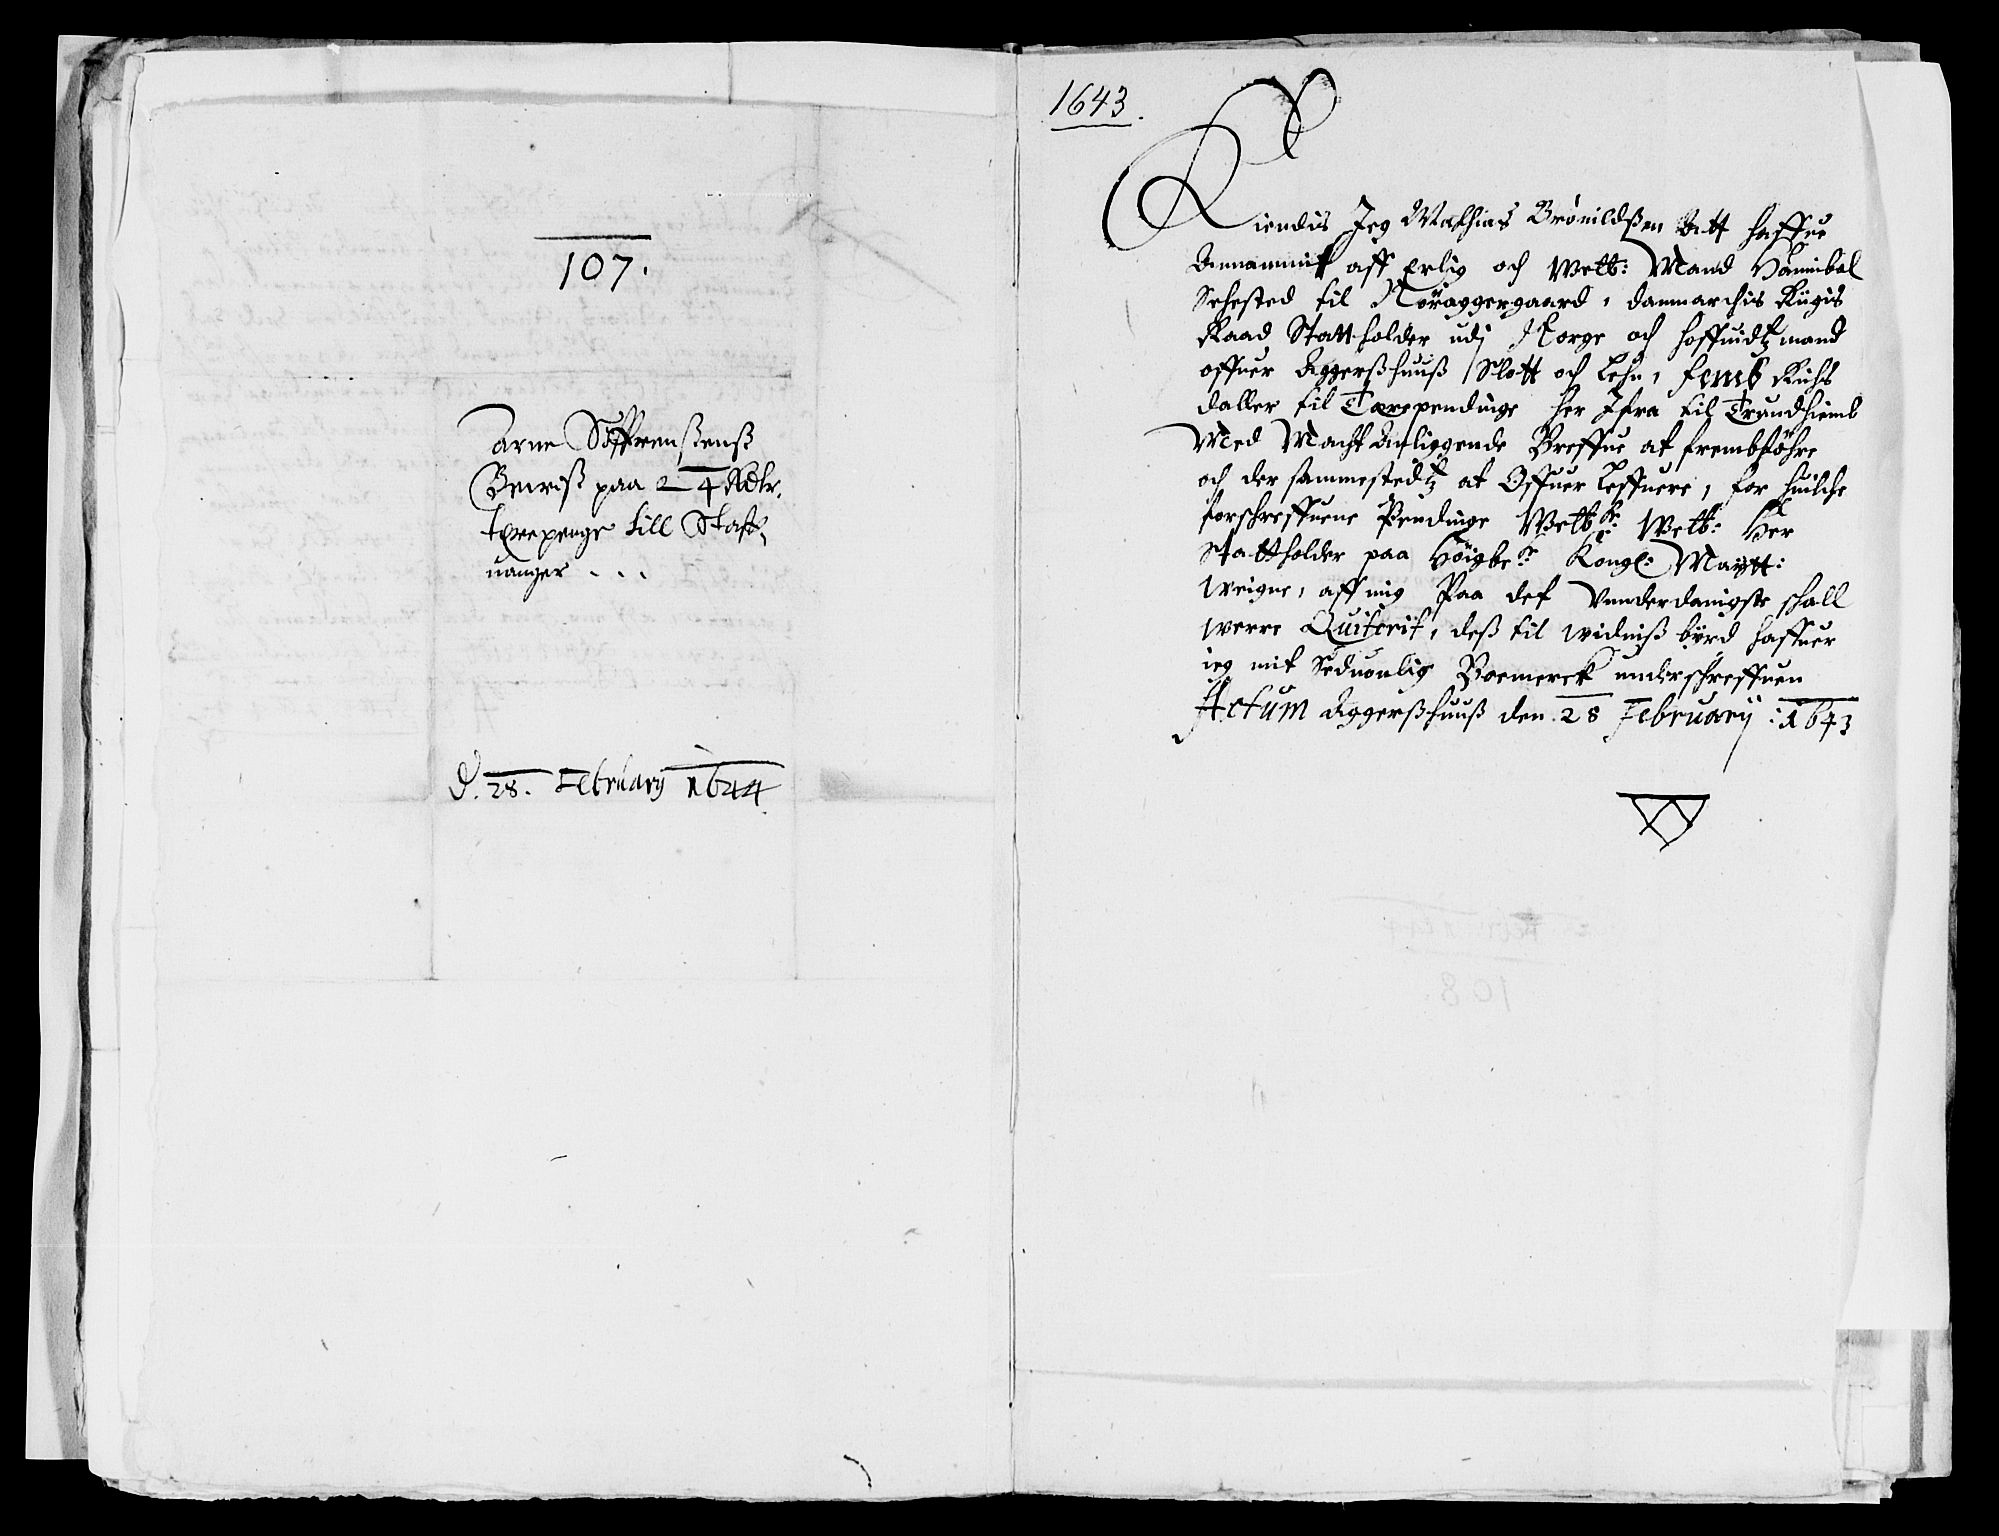 107.
Arne Söffrenßenß
Beuiß paa 24 Rdlr.
tærepenge till Staff-
uanger . . .
D. 28. February 1644
1643.
Kiendis Jeg Mathias Brönildßen Att haffue
Annammit aff Erlig och Welb: Mand Hannibal
Sehested til Nöraggergaard, Danmarchis Rigis
Raad Stattholder udj Norge och hoffuidtzmand
offuer Aggerßhuuß Slott och Lehn, femb Richs
daller til Tærependinge her Ifra til Trundhiemb
Med Macht Anliggende Breffue at frembföhre
och der sammestedtz at Offuer Leffuere, for huilche
forschreffuene Pendinge Welbr: Welb: Her
Stattholder paa Höigber: Kongl: Maÿtt:
weigne, aff mig Paa det Vnnderdanigste schall
werre Quiterit, deß til widniß bÿrd haffuer
ieg mit Seduonlig Boemerck underschreffuen
Actum Aggerßhuuß den 28 February: 1643
108